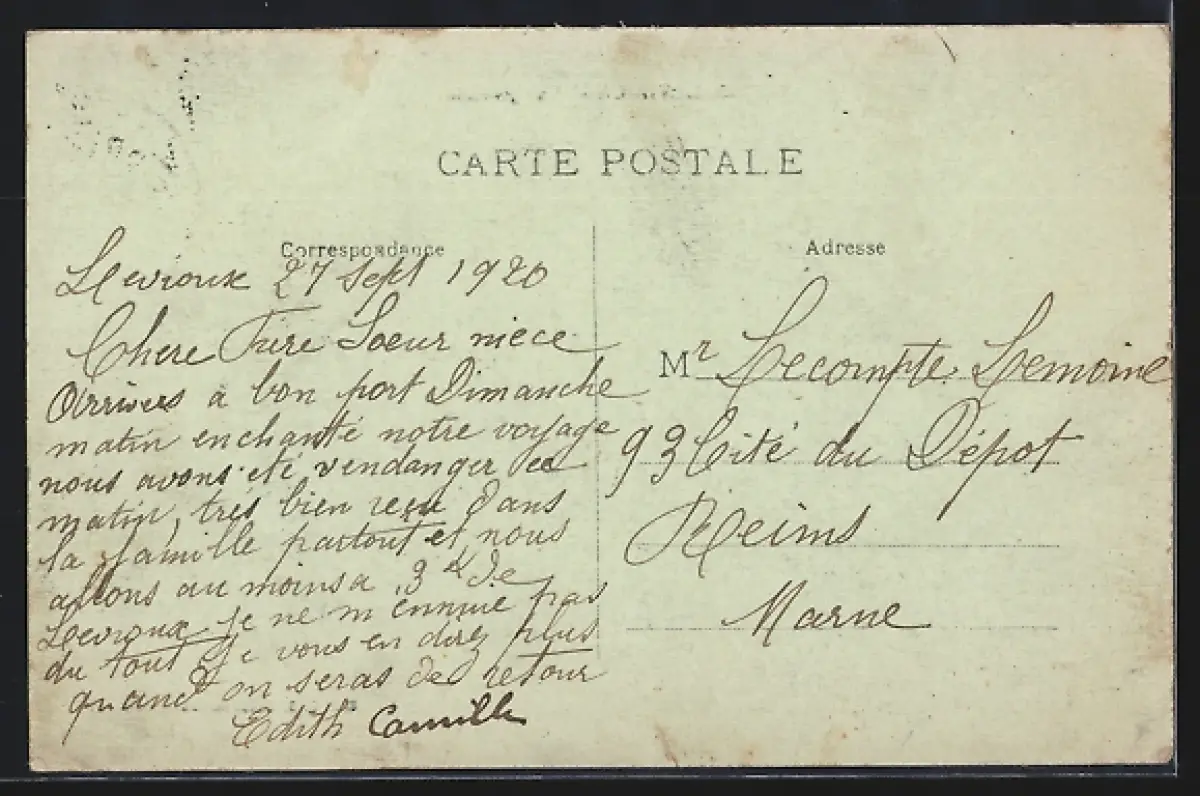 CARTE POSTALE
Correspondance
Adresse
Levroux 27 Sept 1920
Chere Frere Soeur niece
Arrivers a bon port Dimanche
matin enchanté notre voyage
nous avons été vendanger ce
matin, très bien reçu dans
la famille partout et nous
allons au moins a 3 de
Levroux je ne m ennuie pas
du tout je vous en direz plus
quand on seras de retour
Edith Camille
Mr Lecompte Lemoine
93 Cité du Dépot
Reims
Marne